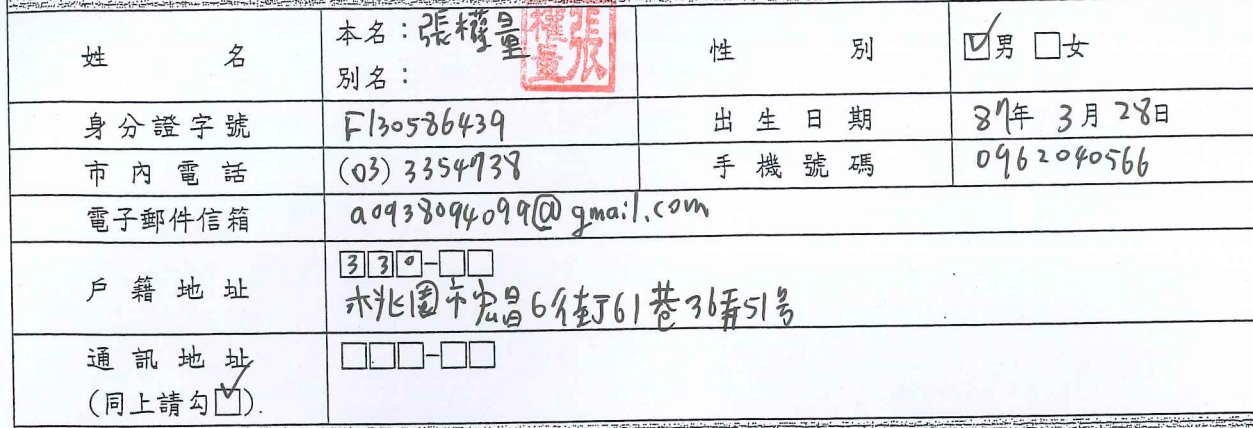 姓名 本名：張權量 性別 ☑男 □女
張權量
別名：
身分證字號 F130586439 出生日期 87年 3月 28日
市內電話 (03) 3354738 手機號碼 0962040566
電子郵件信箱 a0938094099@gmail.com
戶籍地址 330-□□
桃園市宏昌6街61巷36弄51号
通訊地址 □□□-□□
(同上請勾☑).